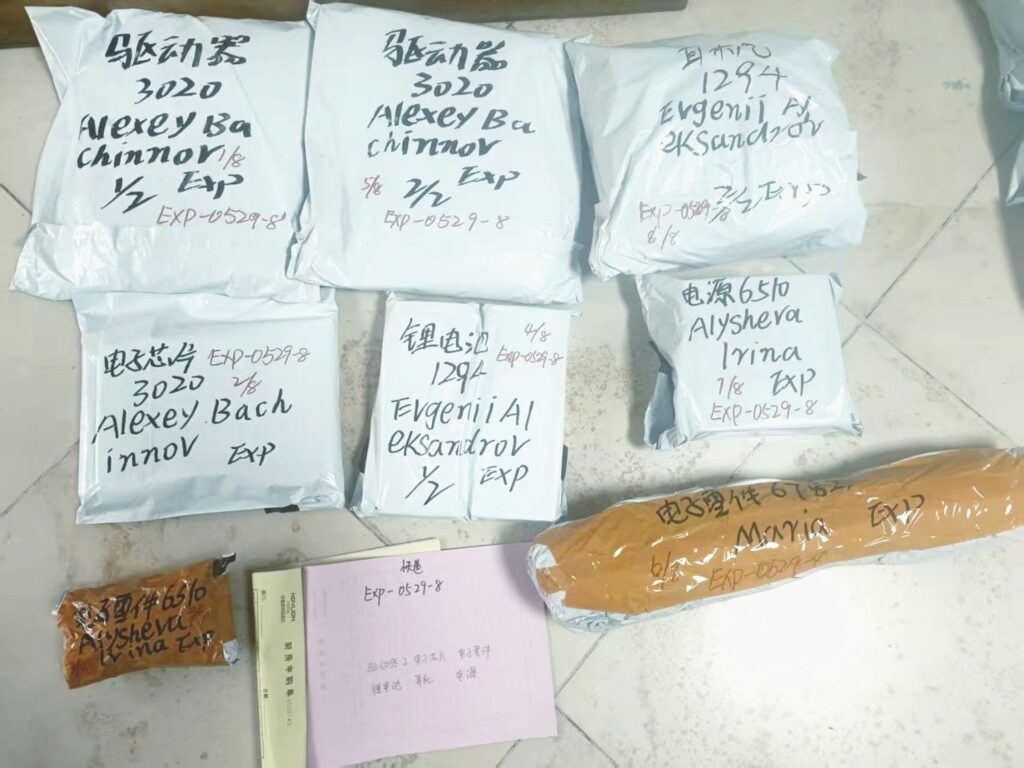 驱动器
3020
Alexey Ba
chinnov 1/8
1/2 Exp
EXP-0529-8
驱动器
3020
Alexey Ba
chinnov
5/8 2/2 Exp
EXP-0529-8
1294
Evgenii Al
eksandrov
2/2 Exp
EXP-0529-8
8/8
电子芯片 EXP-0529-8
3020 2/8
Alexey Bach
innov Exp
锂电池 4/8
1294 EXP-0529-8
Evgenii Al
eksandrov
1/2 Exp
电源6510
Alysheva
Irina
7/8 Exp
EXP-0529-8
电子零件
Maria Exp
6/8 EXP-0529-8
电子零件6510
Alysheva
Irina Exp
快递
EXP-0529-8
驱动器2 电子芯片 电子零件
锂电池 耳机 电源